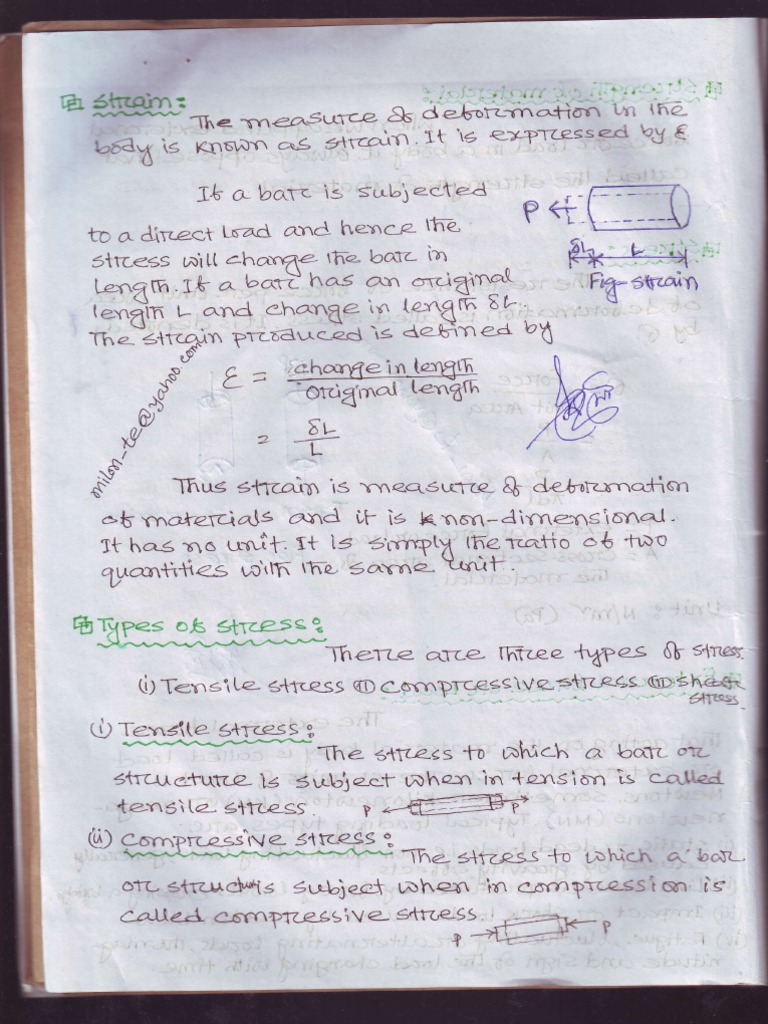 Strain:
The measure of deformation in the
body is known as strain. It is expressed by ε
If a bar is subjected
to a direct load and hence the
stress will change the bar in
length. If a bar has an original
length L and change in length δL.
The strain produced is defined by
P
δL L
Fig-strain
ε = change in length
original length
= δL
L
milon-te@yahoo.com
Thus strain is measure of deformation
of materials and it is non-dimensional.
It has no unit. It is simply the ratio of two
quantities with the same unit.
Types of stress:
There are three types of stress.
(i) Tensile stress (ii) compressive stress (iii) shear
stress.
(i) Tensile stress:
The stress to which a bar or
structure is subject when in tension is called
tensile stress P P
(ii) compressive stress:
The stress to which a bar
or structure is subject when in compression is
called compressive stress
P P